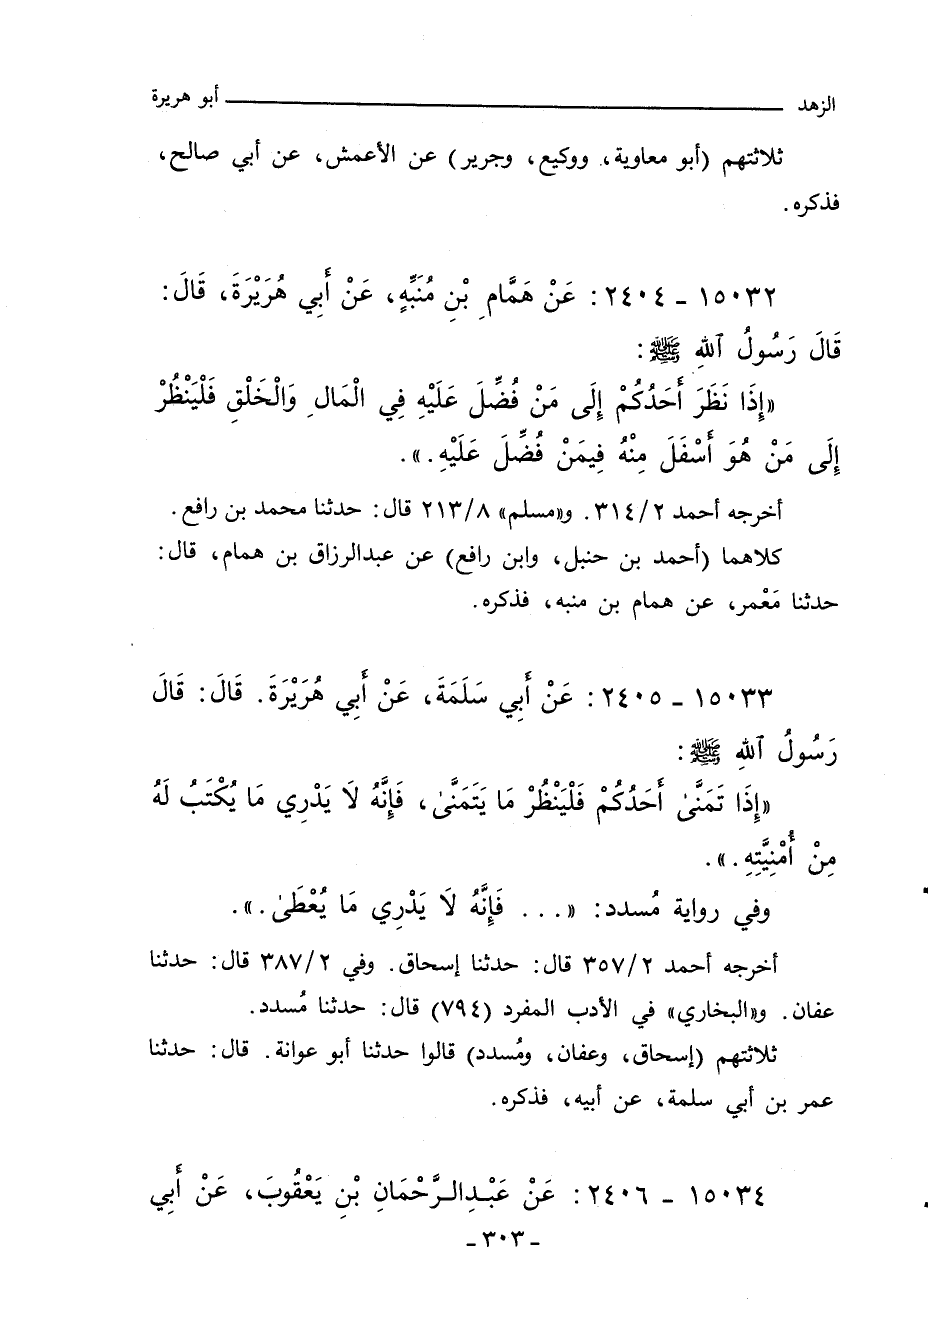 الزهد ــــــ أبو هريرة
ثلاثتهم (أبو معاوية، ووكيع، وجرير) عن الأعمش، عن أبي صالح،
فذكره.
١٥٠٣٢ - ٢٤٠٤: عَنْ هَمَّامِ بْنِ مُنَبِّهٍ، عَنْ أَبِي هُرَيْرَةَ، قَالَ:
قَالَ رَسُولُ ٱللهِ ﷺ:
«إِذَا نَظَرَ أَحَدُكُمْ إِلَى مَنْ فُضِّلَ عَلَيْهِ فِي الْمَالِ وَالْخَلْقِ فَلْيَنْظُرْ
إِلَى مَنْ هُوَ أَسْفَلَ مِنْهُ فِيمَنْ فُضِّلَ عَلَيْهِ.».
أخرجه أحمد ٣١٤/٢. و«مسلم» ٢١٣/٨ قال: حدثنا محمد بن رافع.
كلاهما (أحمد بن حنبل، وابن رافع) عن عبدالرزاق بن همام، قال:
حدثنا مَعْمر، عن همام بن منبه، فذكره.
١٥٠٣٣ - ٢٤٠٥: عَنْ أَبِي سَلَمَةَ، عَنْ أَبِي هُرَيْرَةَ. قَالَ: قَالَ
رَسُولُ ٱللهِ ﷺ:
«إِذَا تَمَنَّىٰ أَحَدُكُمْ فَلْيَنْظُرْ مَا يَتَمَنَّىٰ، فَإِنَّهُ لَا يَدْرِي مَا يُكْتَبُ لَهُ
مِنْ أُمْنِيَّتِهِ.».
وفي رواية مُسدد: «... فَإِنَّهُ لَا يَدْرِي مَا يُعْطَىٰ.».
أخرجه أحمد ٣٥٧/٢ قال: حدثنا إسحاق. وفي ٣٨٧/٢ قال: حدثنا
عفان. و«البخاري» في الأدب المفرد (٧٩٤) قال: حدثنا مُسدد.
ثلاثتهم (إسحاق، وعفان، ومُسدد) قالوا حدثنا أبو عوانة. قال: حدثنا
عمر بن أبي سلمة، عن أبيه، فذكره.
١٥٠٣٤ - ٢٤٠٦: عَنْ عَبْدِالرَّحْمَانِ بْنِ يَعْقُوبَ، عَنْ أَبِي
- ٣٠٣ -